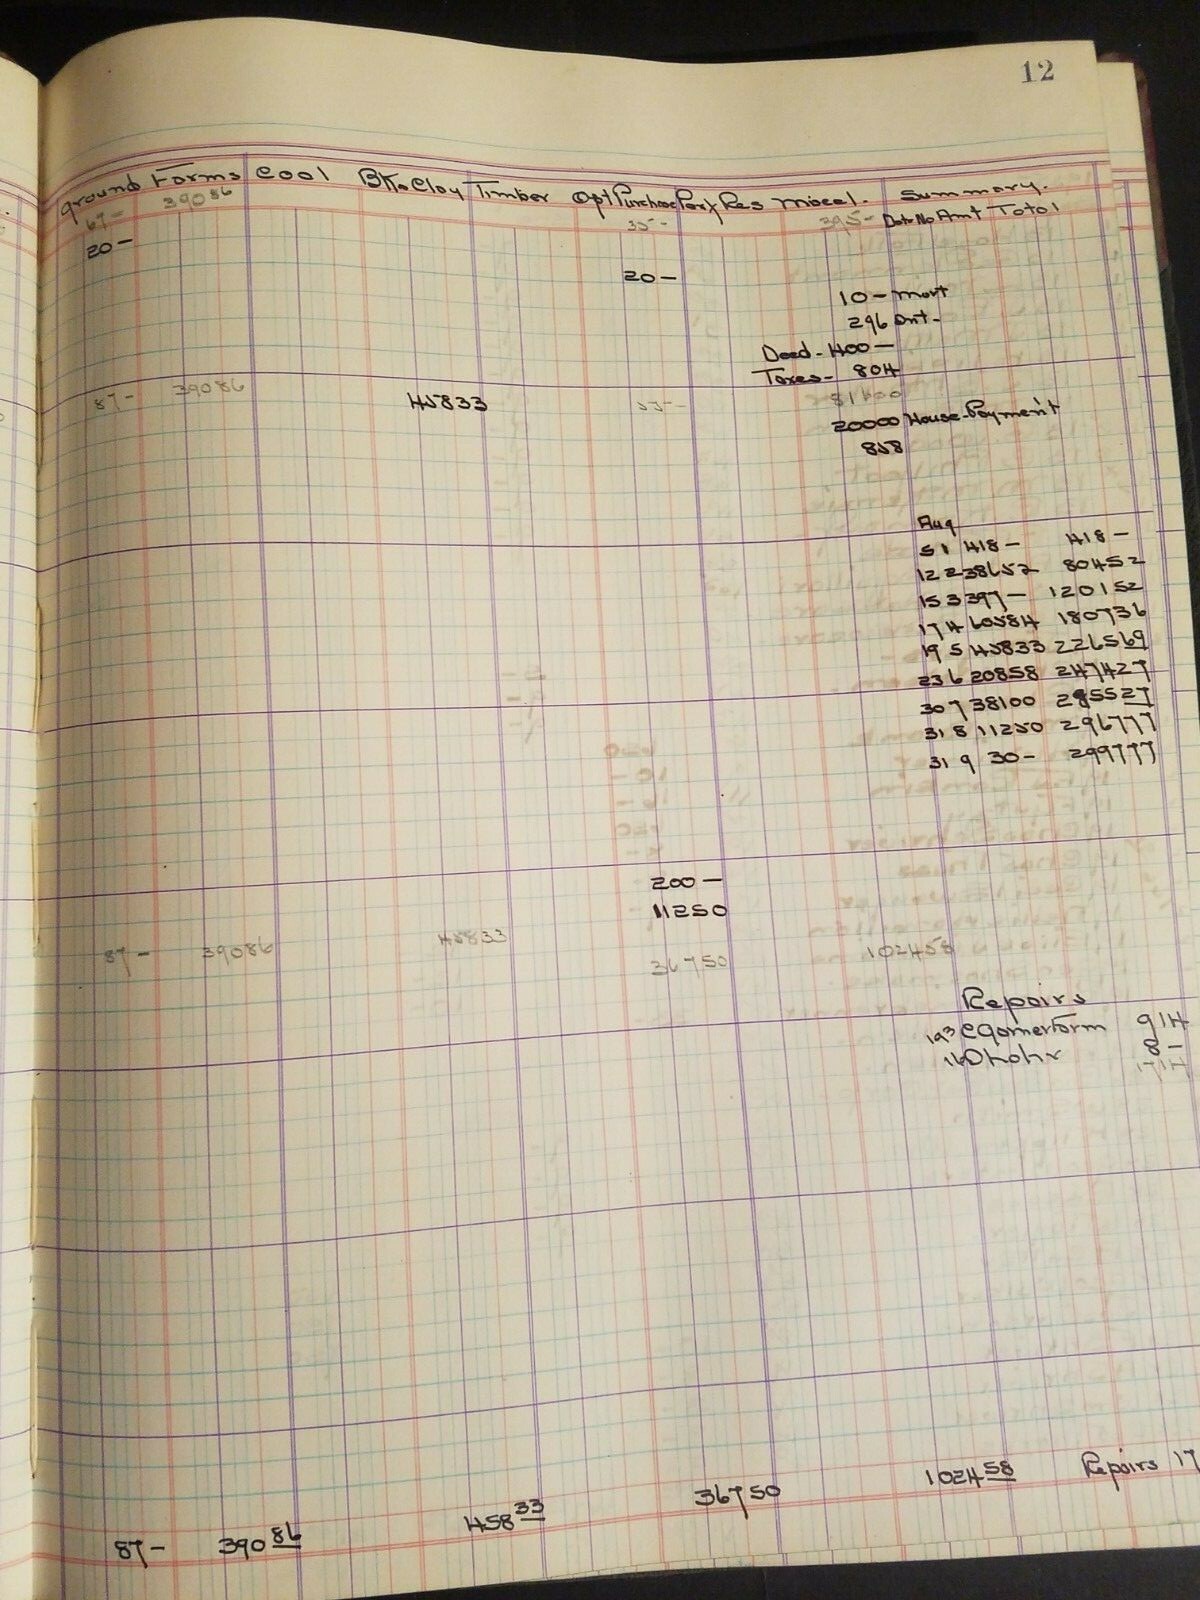 12
Ground Farms Coal BK & Clay Timber Opt Purchase Park Res Miscel. Summary.
67- 39086 35- 395- Date No Amt Total
20-
20-
10- Mort
296 Int-
Deed- 400-
Taxes- 804
87- 39086 45833 55- 81600
20000 House-Payment
858
Aug
5 1 418- 418-
12 2 38652 80452
15 3 397- 120152
17 4 60584 180736
19 5 45833 226569
23 6 20858 247427
30 7 38100 285527
31 8 11250 296777
31 9 30- 299777
200-
11250
87- 39086 45833 36750 102458
Repairs
193 C Gomer Farm 914
16 D Lohr 8-
1714
87- 39086 45833 36750 102458 Repairs 17